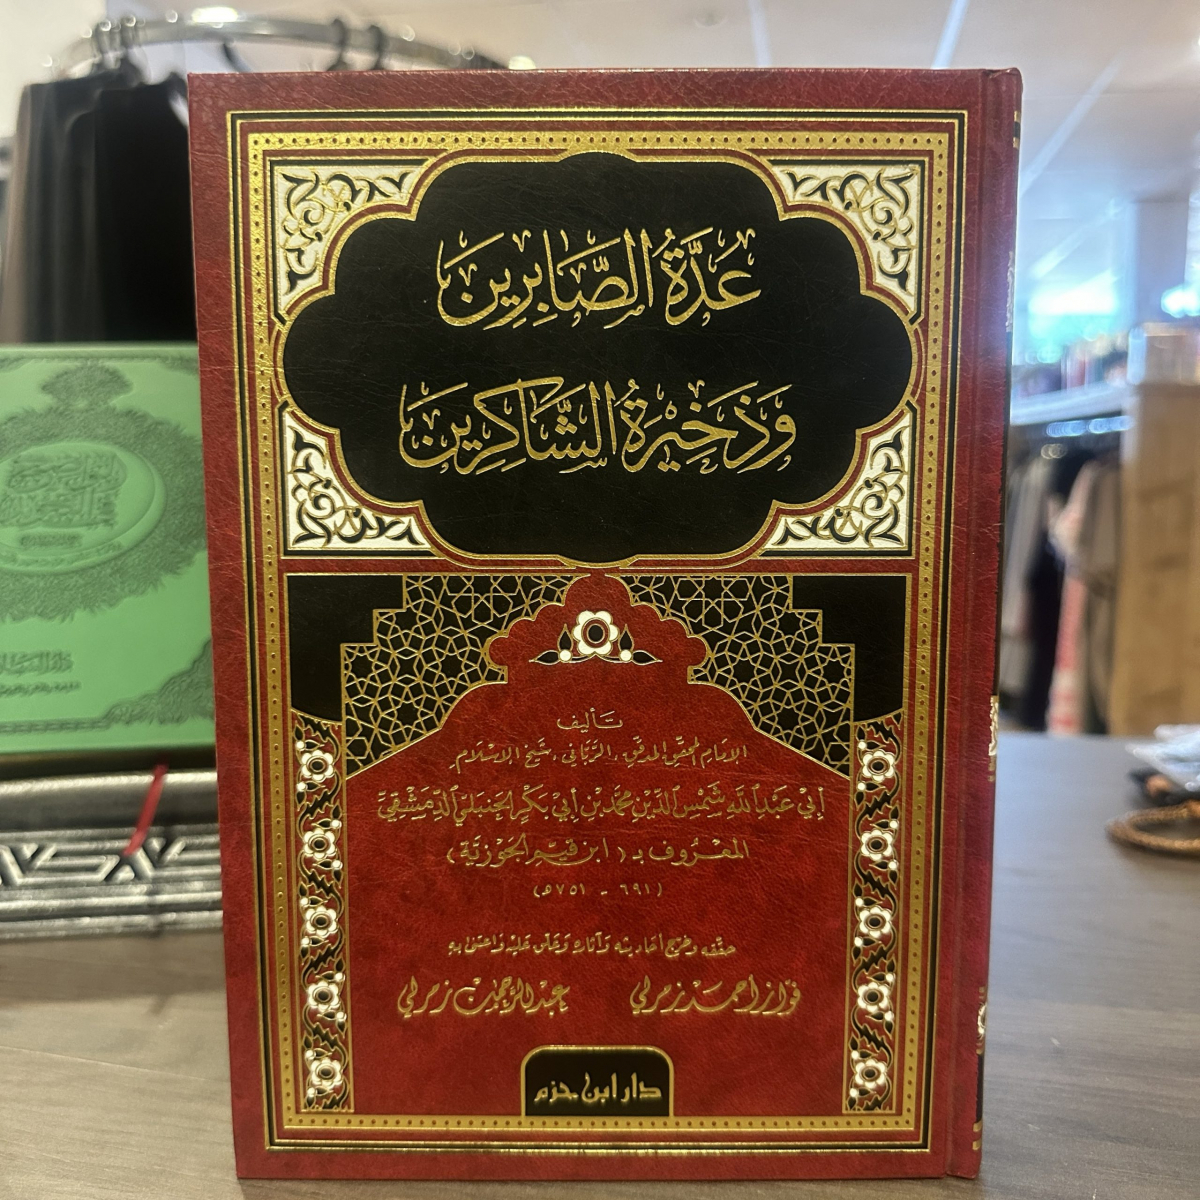 عُدَّةُ الصَّابِرِينَ
وَذَخِيرَةُ الشَّاكِرِينَ
تَأليف
الإمَامِ المحقّق المدقّق، الرّبّاني، شَيخ الإسْلَام
أبي عَبْدِ اللّه شَمْسِ الدِّين محمَّد بْن أبي بَكْرٍ الحَنبَليّ الدِّمَشْقِيَّ
المَعْرُوف بـ (ابن قيّم الجَوْزيَّة)
(٦٩١ - ٧٥١هـ)
حقّقه وخرّج أحاديثه وَآثاره وَعَلّق عَليْه وَاعتَنى به
فوّاز أحمَد زمرلي
عبد الرّحمٰن زمرلي
دار ابن حزم